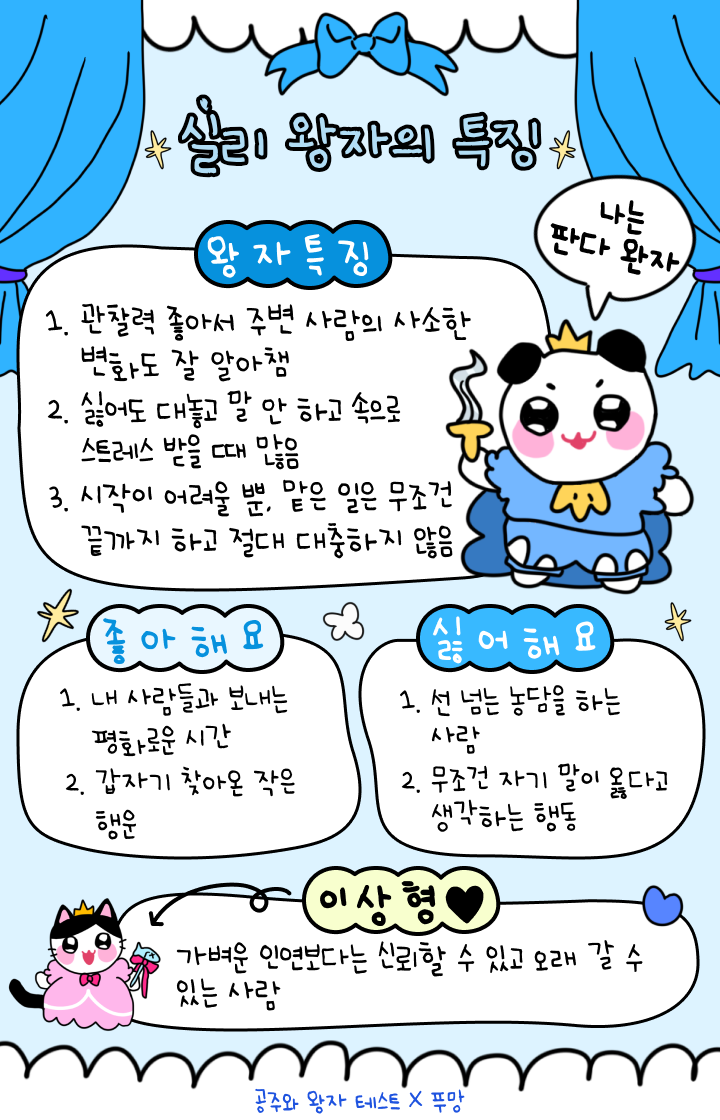 실리 왕자의 특징
나는
판다 완자
왕자특징
1. 관찰력 좋아서 주변 사람의 사소한
변화도 잘 알아챔
2. 싫어도 대놓고 말 안 하고 속으로
스트레스 받을 때 많음
3. 시작이 어려울 뿐, 맡은 일은 무조건
끝까지 하고 절대 대충하지 않음
좋아해요
1. 내 사람들과 보내는
평화로운 시간
2. 갑자기 찾아온 작은
행운
싫어해요
1. 선 넘는 농담을 하는
사람
2. 무조건 자기 말이 옳다고
생각하는 행동
이상형♥
가벼운 인연보다는 신뢰할 수 있고 오래 갈 수
있는 사람
공주와 왕자 테스트 X 푸망